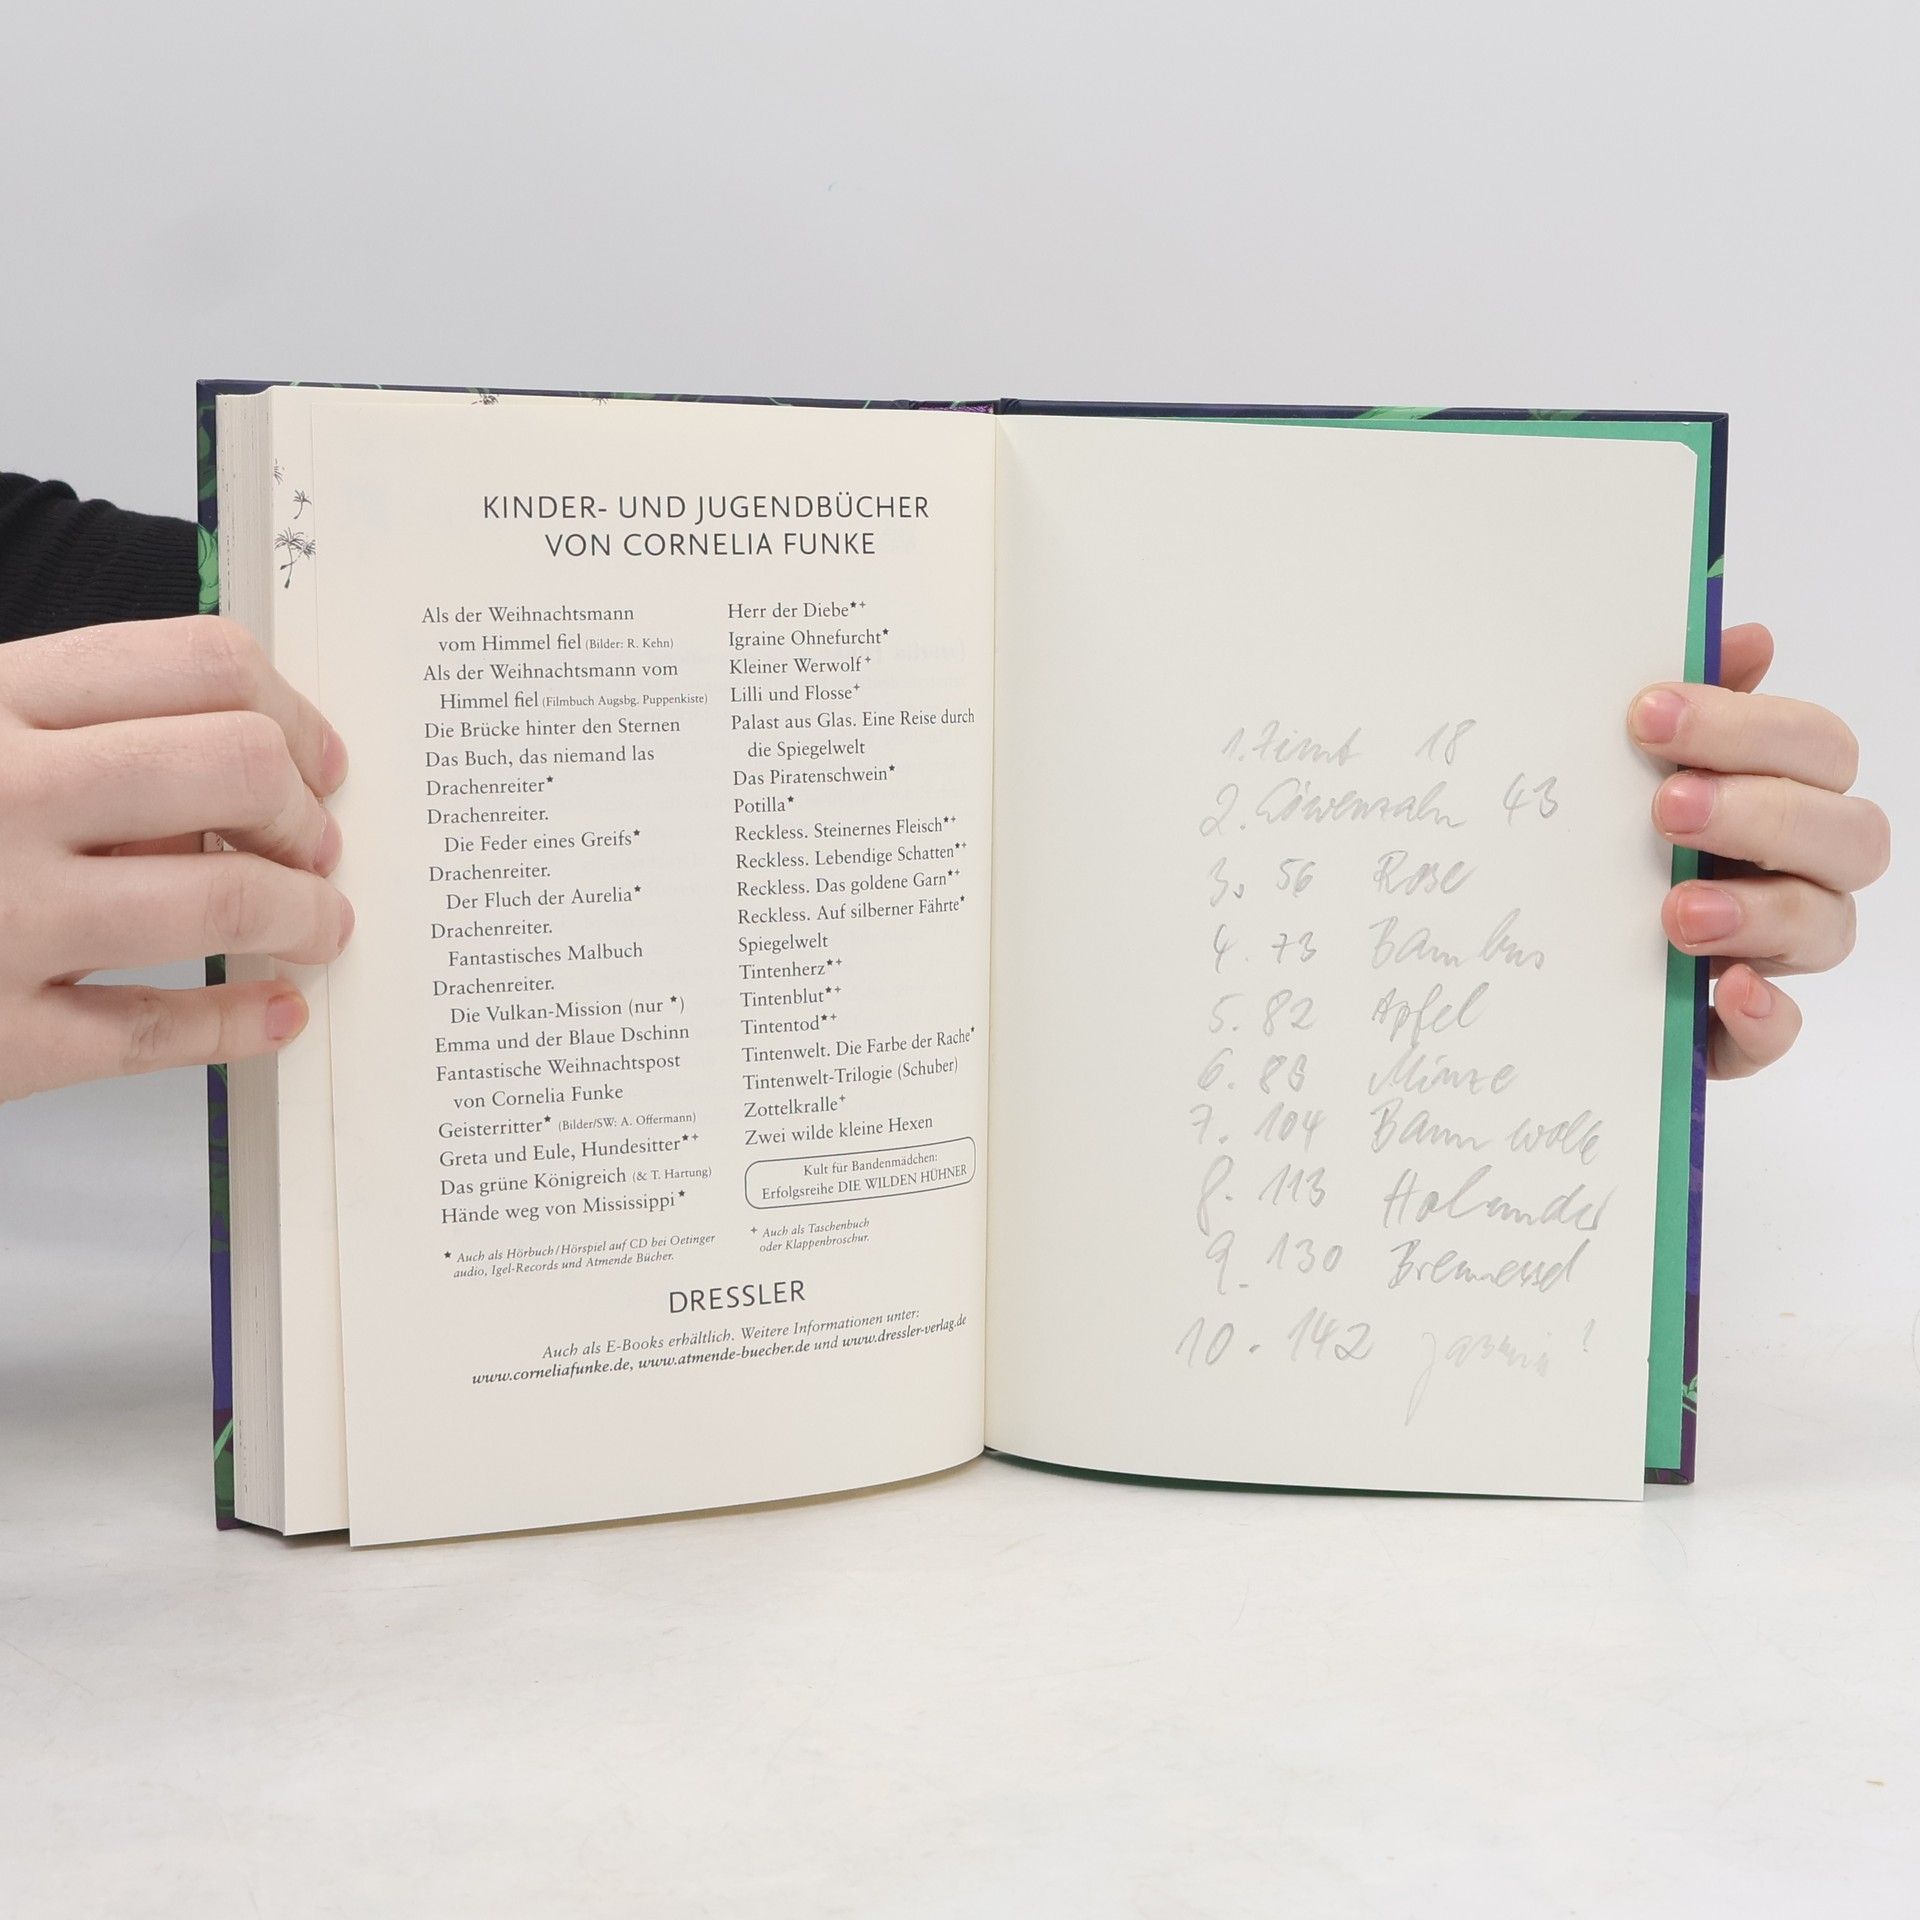 KINDER- UND JUGENDBÜCHER
VON CORNELIA FUNKE
Als der Weihnachtsmann
vom Himmel fiel (Bilder: R. Kehn)
Als der Weihnachtsmann vom
Himmel fiel (Filmbuch Augsbg. Puppenkiste)
Die Brücke hinter den Sternen
Das Buch, das niemand las
Drachenreiter★
Drachenreiter.
Die Feder eines Greifs★
Drachenreiter.
Der Fluch der Aurelia★
Drachenreiter.
Fantastisches Malbuch
Drachenreiter.
Die Vulkan-Mission (nur ★)
Emma und der Blaue Dschinn
Fantastische Weihnachtspost
von Cornelia Funke
Geisterritter★ (Bilder/SW: A. Offermann)
Greta und Eule, Hundesitter★+
Das grüne Königreich (& T. Hartung)
Hände weg von Mississippi★
★ Auch als Hörbuch/Hörspiel auf CD bei Oetinger
audio, Igel-Records und Atmende Bücher.
Herr der Diebe★+
Igraine Ohnefurcht★
Kleiner Werwolf+
Lilli und Flosse+
Palast aus Glas. Eine Reise durch
die Spiegelwelt
Das Piratenschwein★
Potilla★
Reckless. Steinernes Fleisch★+
Reckless. Lebendige Schatten★+
Reckless. Das goldene Garn★+
Reckless. Auf silberner Fährte★
Spiegelwelt
Tintenherz★+
Tintenblut★+
Tintentod★+
Tintenwelt. Die Farbe der Rache★
Tintenwelt-Trilogie (Schuber)
Zottelkralle+
Zwei wilde kleine Hexen
Kult für Bandenmädchen:
Erfolgsreihe DIE WILDEN HÜHNER
+ Auch als Taschenbuch
oder Klappenbroschur.
DRESSLER
Auch als E-Books erhältlich. Weitere Informationen unter:
www.corneliafunke.de, www.atmende-buecher.de und www.dressler-verlag.de
1. Zimt 18
2. Löwenzahn 43
3. 56 Rose
4. 73 Bambus
5. 82 Apfel
6. 88 Minze
7. 104 Baumwolle
8. 113 Holunder
9. 130 Brennessel
10. 142 Jasmin !